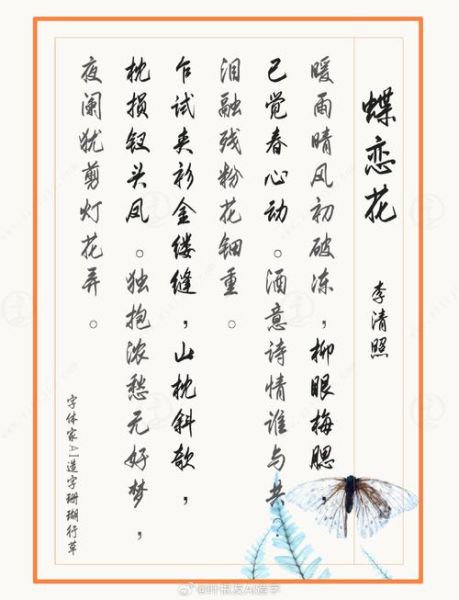 蝶恋花
李清照
暖雨晴风初破冻，柳眼梅腮，
已觉春心动。酒意诗情谁与共。
泪融残粉花钿重。
乍试夹衫金缕缝，山枕斜欹，
枕损钗头凤。独抱浓愁无好梦，
夜阑犹剪灯花弄。
字体家AI造字珊瑚行草
@叶根友AI造字